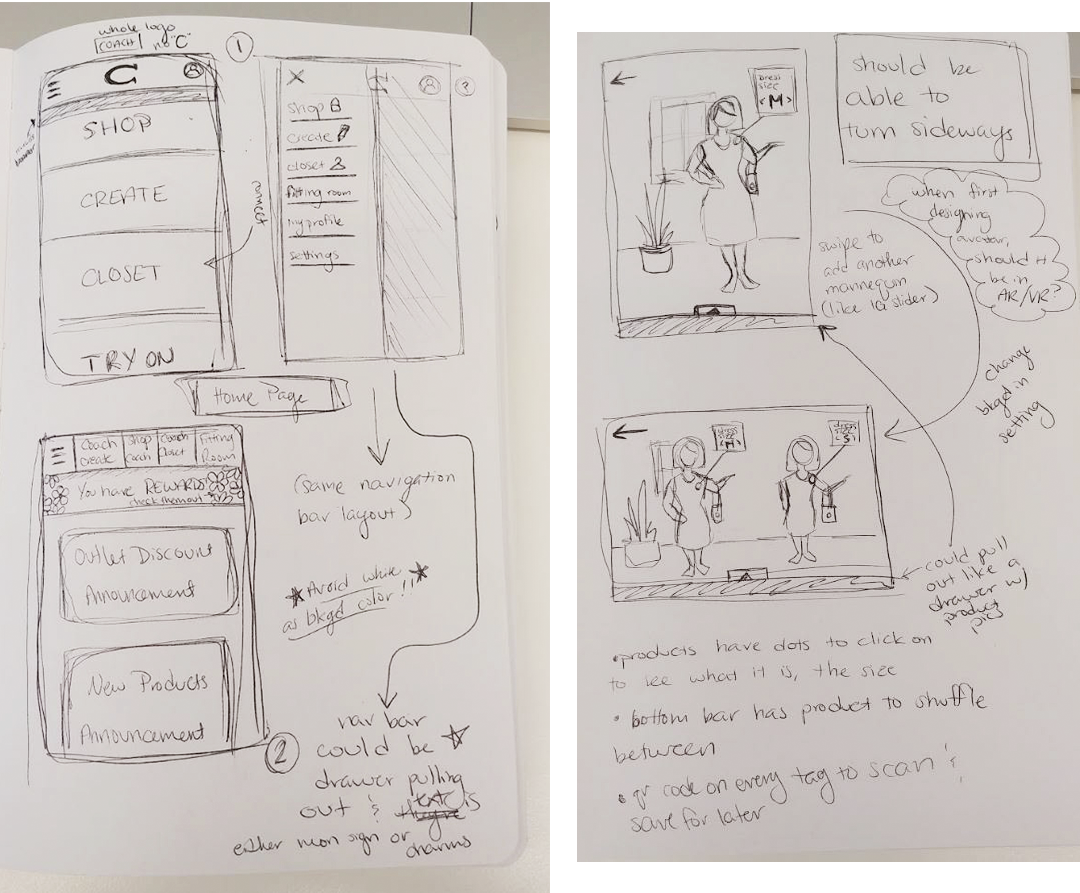 whole logo
COACH no "C"
1
C
SHOP
CREATE
CLOSET
TRY ON
connect
X
C
?
shop
create
closet
fitting room
my profile
settings
Home Page
Coach create
Shop coach
Coach Closet
Fitting Room
You have REWARDS
check them out
Outlet Discount
Announcement
New Products
Announcement
2
(same navigation
bar layout)
Avoid white
as bkgd color!!
nav bar
could be
drawer pulling
out & text is
either neon sign or
charms
dress
size
<M>
should be
able to
turn sideways
when first
designing
avatar,
should it
be in
AR/VR?
swipe to
add another
mannequin
(like IG slider)
change
bkgd in
setting
dress
size
<M>
dress
size
<S>
could pull
out like a
drawer w/
product
pics
• products have dots to click on
to see what it is, the size
• bottom bar has product to shuffle
between
• qr code on every tag to scan &
save for later